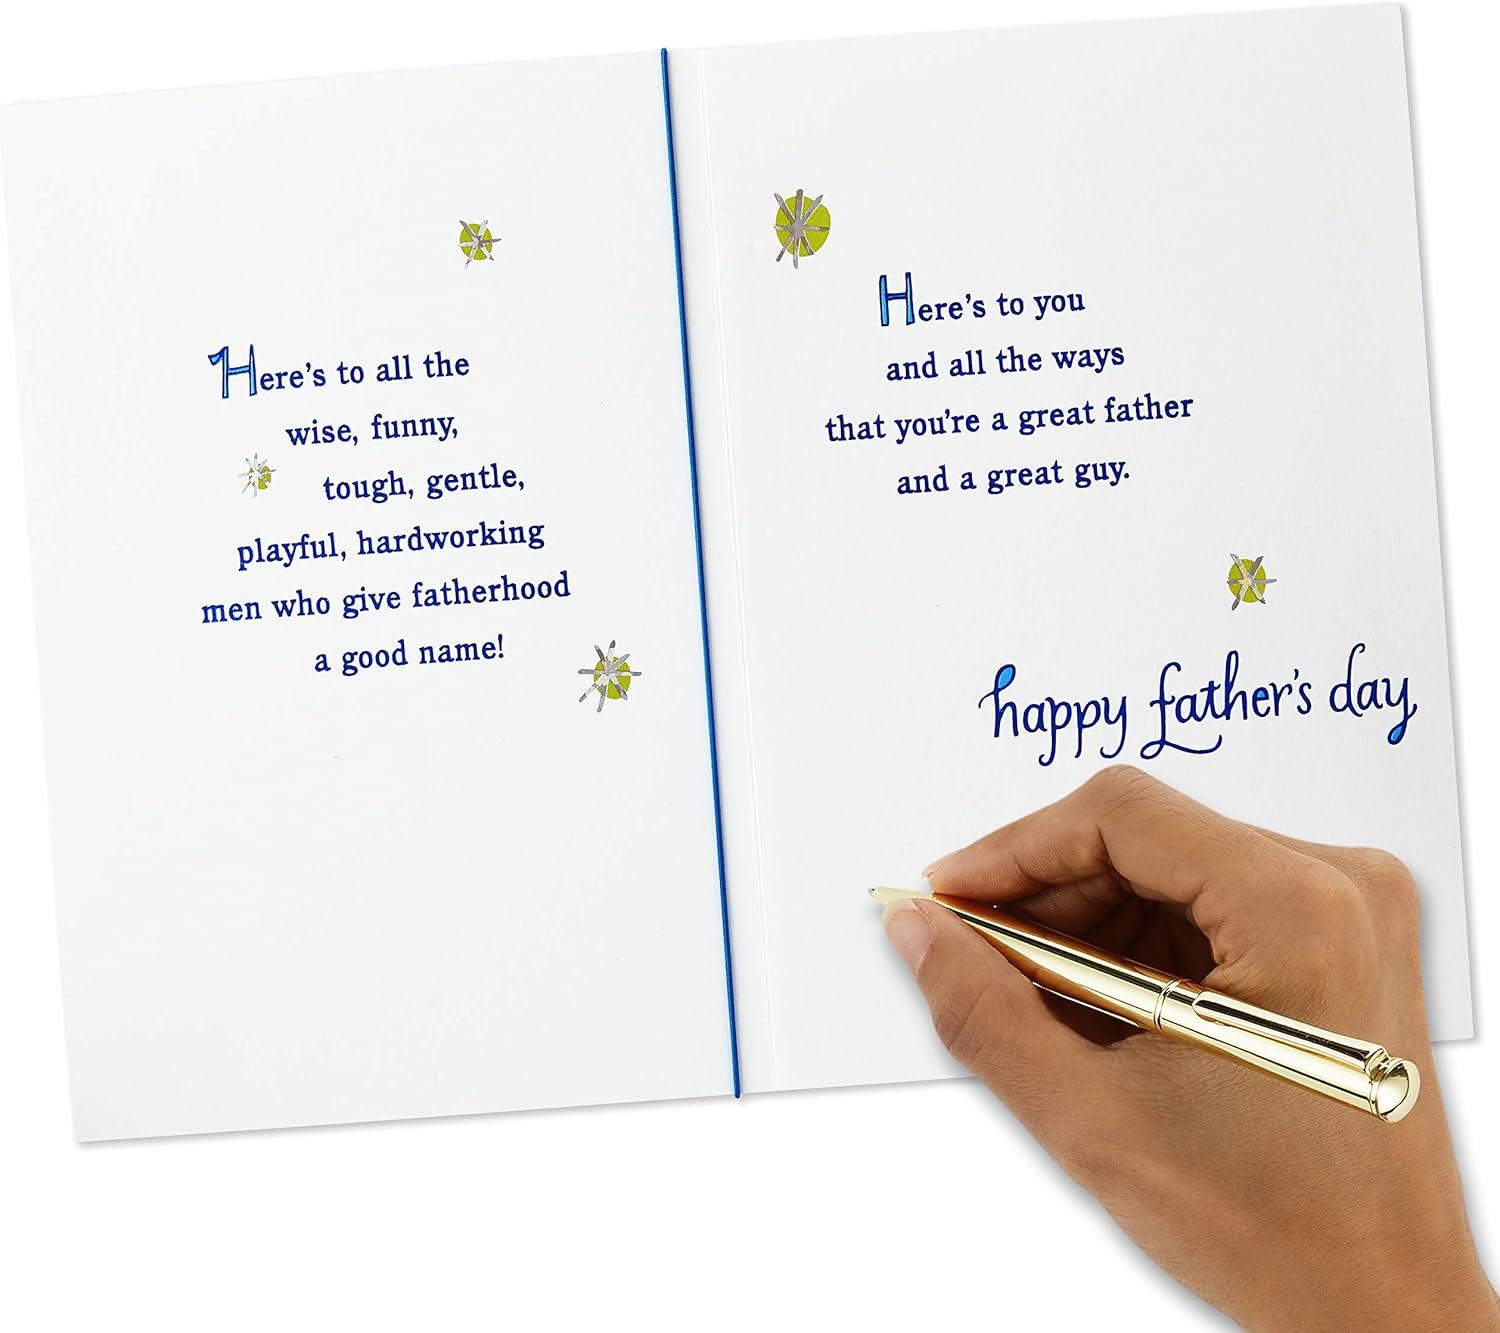 Here's to all the
wise, funny,
tough, gentle,
playful, hardworking
men who give fatherhood
a good name!
Here's to you
and all the ways
that you're a great father
and a great guy.
happy father's day